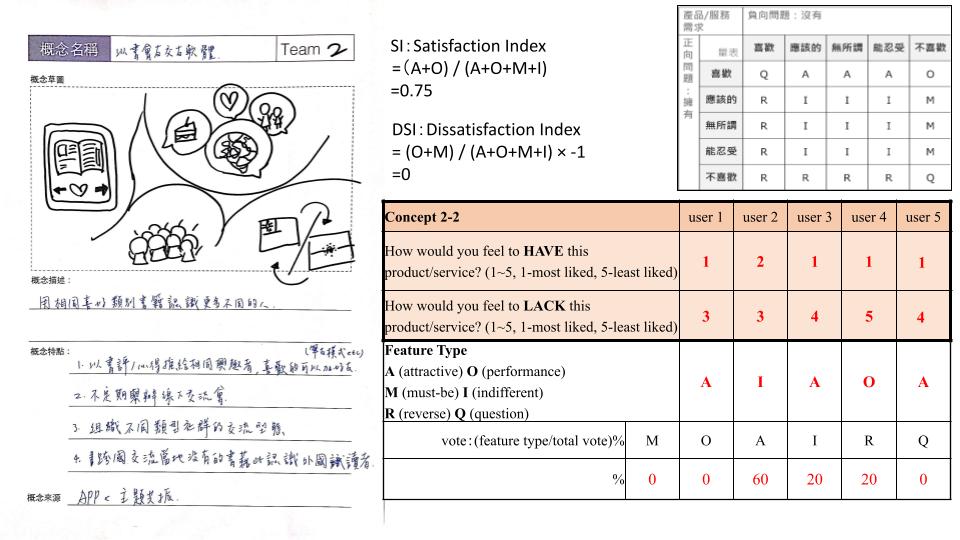 概念名稱 以書會友交友軟體. Team 2
概念草圖
概念描述:
用相同喜好類別書籍認識更多不同的人.
概念特點:
1. 以書評/心得推給相同興趣者, 喜歡的可以加好友.
2. 不定期舉辦線下交流會.
3. 組織不同類型社群的交流型態
4. 跨國交流當地沒有的書藉此認識外國讀者.
概念來源 APP < 主題共振.
SI:Satisfaction Index
=(A+O) / (A+O+M+I)
=0.75
DSI:Dissatisfaction Index
= (O+M) / (A+O+M+I) × -1
=0
產品/服務需求 負向問題:沒有
正向問題:擁有 量表 喜歡 應該的 無所謂 能忍受 不喜歡
喜歡 Q A A A O
應該的 R I I I M
無所謂 R I I I M
能忍受 R I I I M
不喜歡 R R R R Q
Concept 2-2 user 1 user 2 user 3 user 4 user 5
How would you feel to HAVE this
product/service? (1~5, 1-most liked, 5-least liked) 1 2 1 1 1
How would you feel to LACK this
product/service? (1~5, 1-most liked, 5-least liked) 3 3 4 5 4
Feature Type
A (attractive) O (performance)
M (must-be) I (indifferent)
R (reverse) Q (question)
A I A O A
vote:(feature type/total vote)% M O A I R Q
% 0 0 60 20 20 0